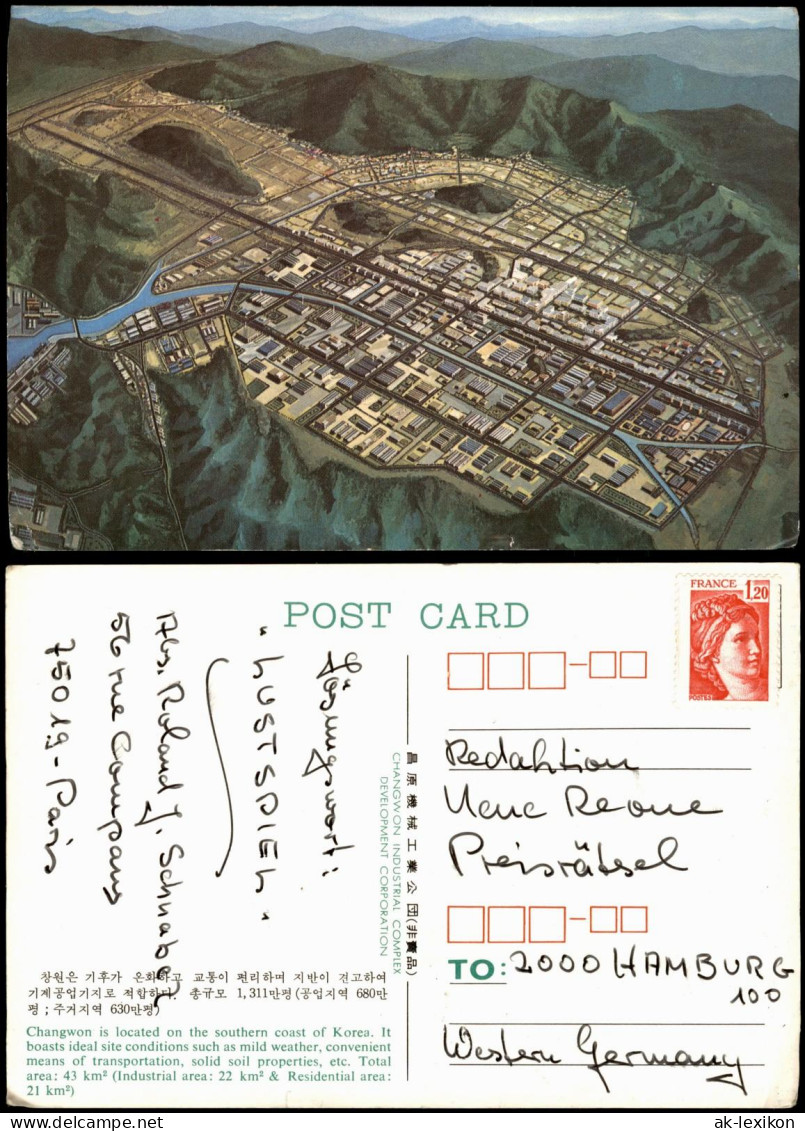 POST CARD
FRANCE
1,20
POSTES
Lösungswort:
"LUSTSPIEL"
Abs. Roland J. Schnabel
56 rue Compans
75019-Paris
昌原機械工業公団(非賣品)
CHANGWON INDUSTRIAL COMPLEX
DEVELOPMENT CORPORATION
Redaktion
Neue Revue
Preisrätsel
TO: 2000 HAMBURG
100
Western Germany
창원은 기후가 온화하고 교통이 편리하며 지반이 견고하여
기계공업기지로 적합하다. 총규모 1,311만평(공업지역 680만
평 ; 주거지역 630만평)
Changwon is located on the southern coast of Korea. It
boasts ideal site conditions such as mild weather, convenient
means of transportation, solid soil properties, etc. Total
area: 43 km² (Industrial area: 22 km² & Residential area:
21 km²)
ak-lexikon